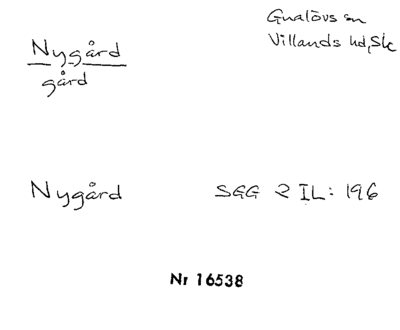 Nygård
gård
Gualövs sn
Villands hd, Sk
Nygård
SGG 2 IL: 196
Nr 16538